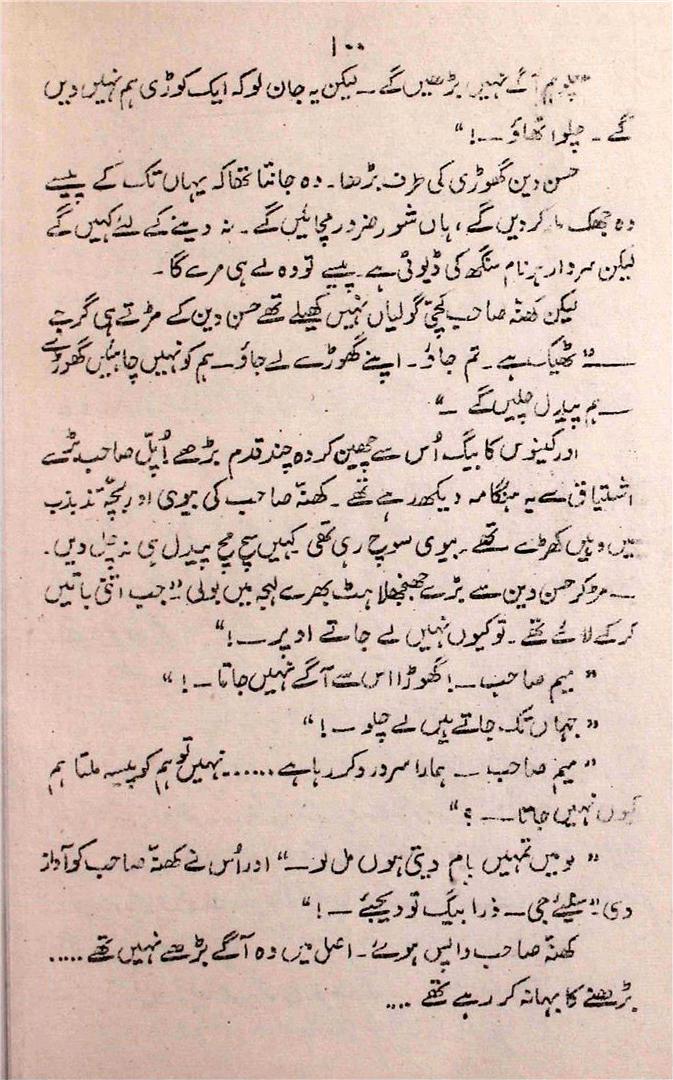 ۱۰۰
چلو ہم آگے نہیں بڑھیں گے ۔ لیکن یہ جان لو کہ ایک کوڑی ہم نہیں دیں
گے ۔ چلو اٹھاؤ ۔۔! "
حسن دین گھوڑی کی طرف بڑھا ۔ وہ جانتا تھا کہ یہاں تک کے پیسے
وہ جھک مار کر دیں گے ، ہاں شور ضرور مچائیں گے ۔ نہ دینے کے لئے کہیں گے
لیکن سردار ہرنام سنگھ کی ڈیوٹی ہے ۔ پیسے تو وہ لے ہی مرے گا ۔
لیکن کھنہ صاحب کچی گولیاں نہیں کھیلے تھے حسن دین کے مڑتے ہی گرجے
ــــ " ٹھیک ہے ۔ تم جاؤ ۔ اپنے گھوڑے لے جاؤ ۔ ہم کو نہیں چاہئیں گھوڑے
ـــ ہم پیدل چلیں گے ۔"
اور کینوس کا بیگ اُس سے چھین کر وہ چند قدم بڑھے اُپل صاحب بڑے
اشتیاق سے یہ ہنگامہ دیکھ رہے تھے ۔ کھنہ صاحب کی بیوی اور بچہ تذبذب
میں وہیں کھڑے تھے ۔ بیوی سوچ رہی تھی کہیں سچ مچ پیدل ہی نہ چل دیں ۔
ـــ مڑ کر حسن دین سے بڑے جھنجھلاہٹ بھرے لہجہ میں بولی " جب اتنی باتیں
کر کے لائے تھے ۔ تو کیوں نہیں لے جاتے اوپر ۔۔! "
" میم صاحب ۔۔! گھوڑا اس سے آگے نہیں جاتا ۔۔! "
" جہاں تک جاتے ہیں لے چلو ۔۔! "
" میم صاحب ۔۔ ہمارا سر درد کر رہا ہے ...... نہیں تو ہم کو پیسہ ملتا ہم
کیوں نہیں جاتا ۔۔۔ ؟ "
" تو میں تمہیں بام دیتی ہوں مل لو ۔۔ " اور اُس نے کھنہ صاحب کو آواز
دی " سنئے جی ۔۔ ذرا بیگ تو دیجئے ۔۔! "
کھنہ صاحب واپس ہوئے ۔ اصل میں وہ آگے بڑھے نہیں تھے .....
بڑھنے کا بہانہ کر رہے تھے ....